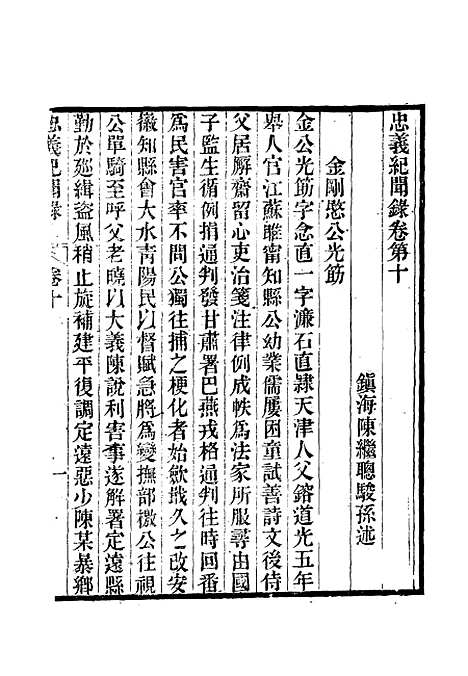 忠義紀聞錄卷第十
鎮海陳繼聰駿孫述
金剛愍公光筯
金公光筯字念直一字濂石直隸天津人父鎔道光五年
舉人官江蘇睢甯知縣公幼業儒屢困童試善詩文後侍
父居廨齋留心吏治箋注律例成帙為法家所服㝷由國
子監生循例捐通判發甘肅署巴燕戎格通判往時回番
為民害官率不問公獨往捕之梗化者始歛戢久之改安
徽知縣會大水青陽民以督賦急將為變撫部檄公往視
公單騎至呼父老曉以大義陳說利害事遂解署定遠縣
勤於廵緝盜風稍止旋補建平復調定遠惡少陳某暴鄉
忠義紀聞錄 卷十 一